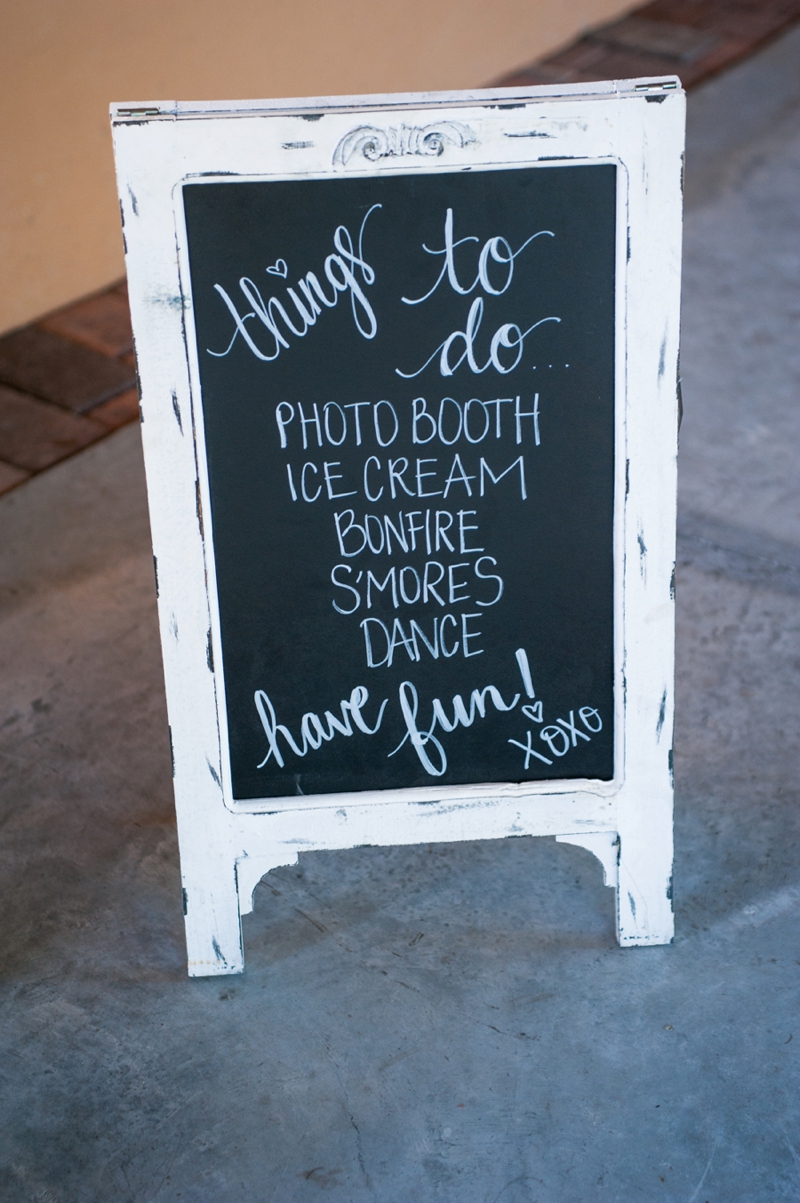 things to
do...
PHOTO BOOTH
ICE CREAM
BONFIRE
S'MORES
DANCE
have fun!
XOXO